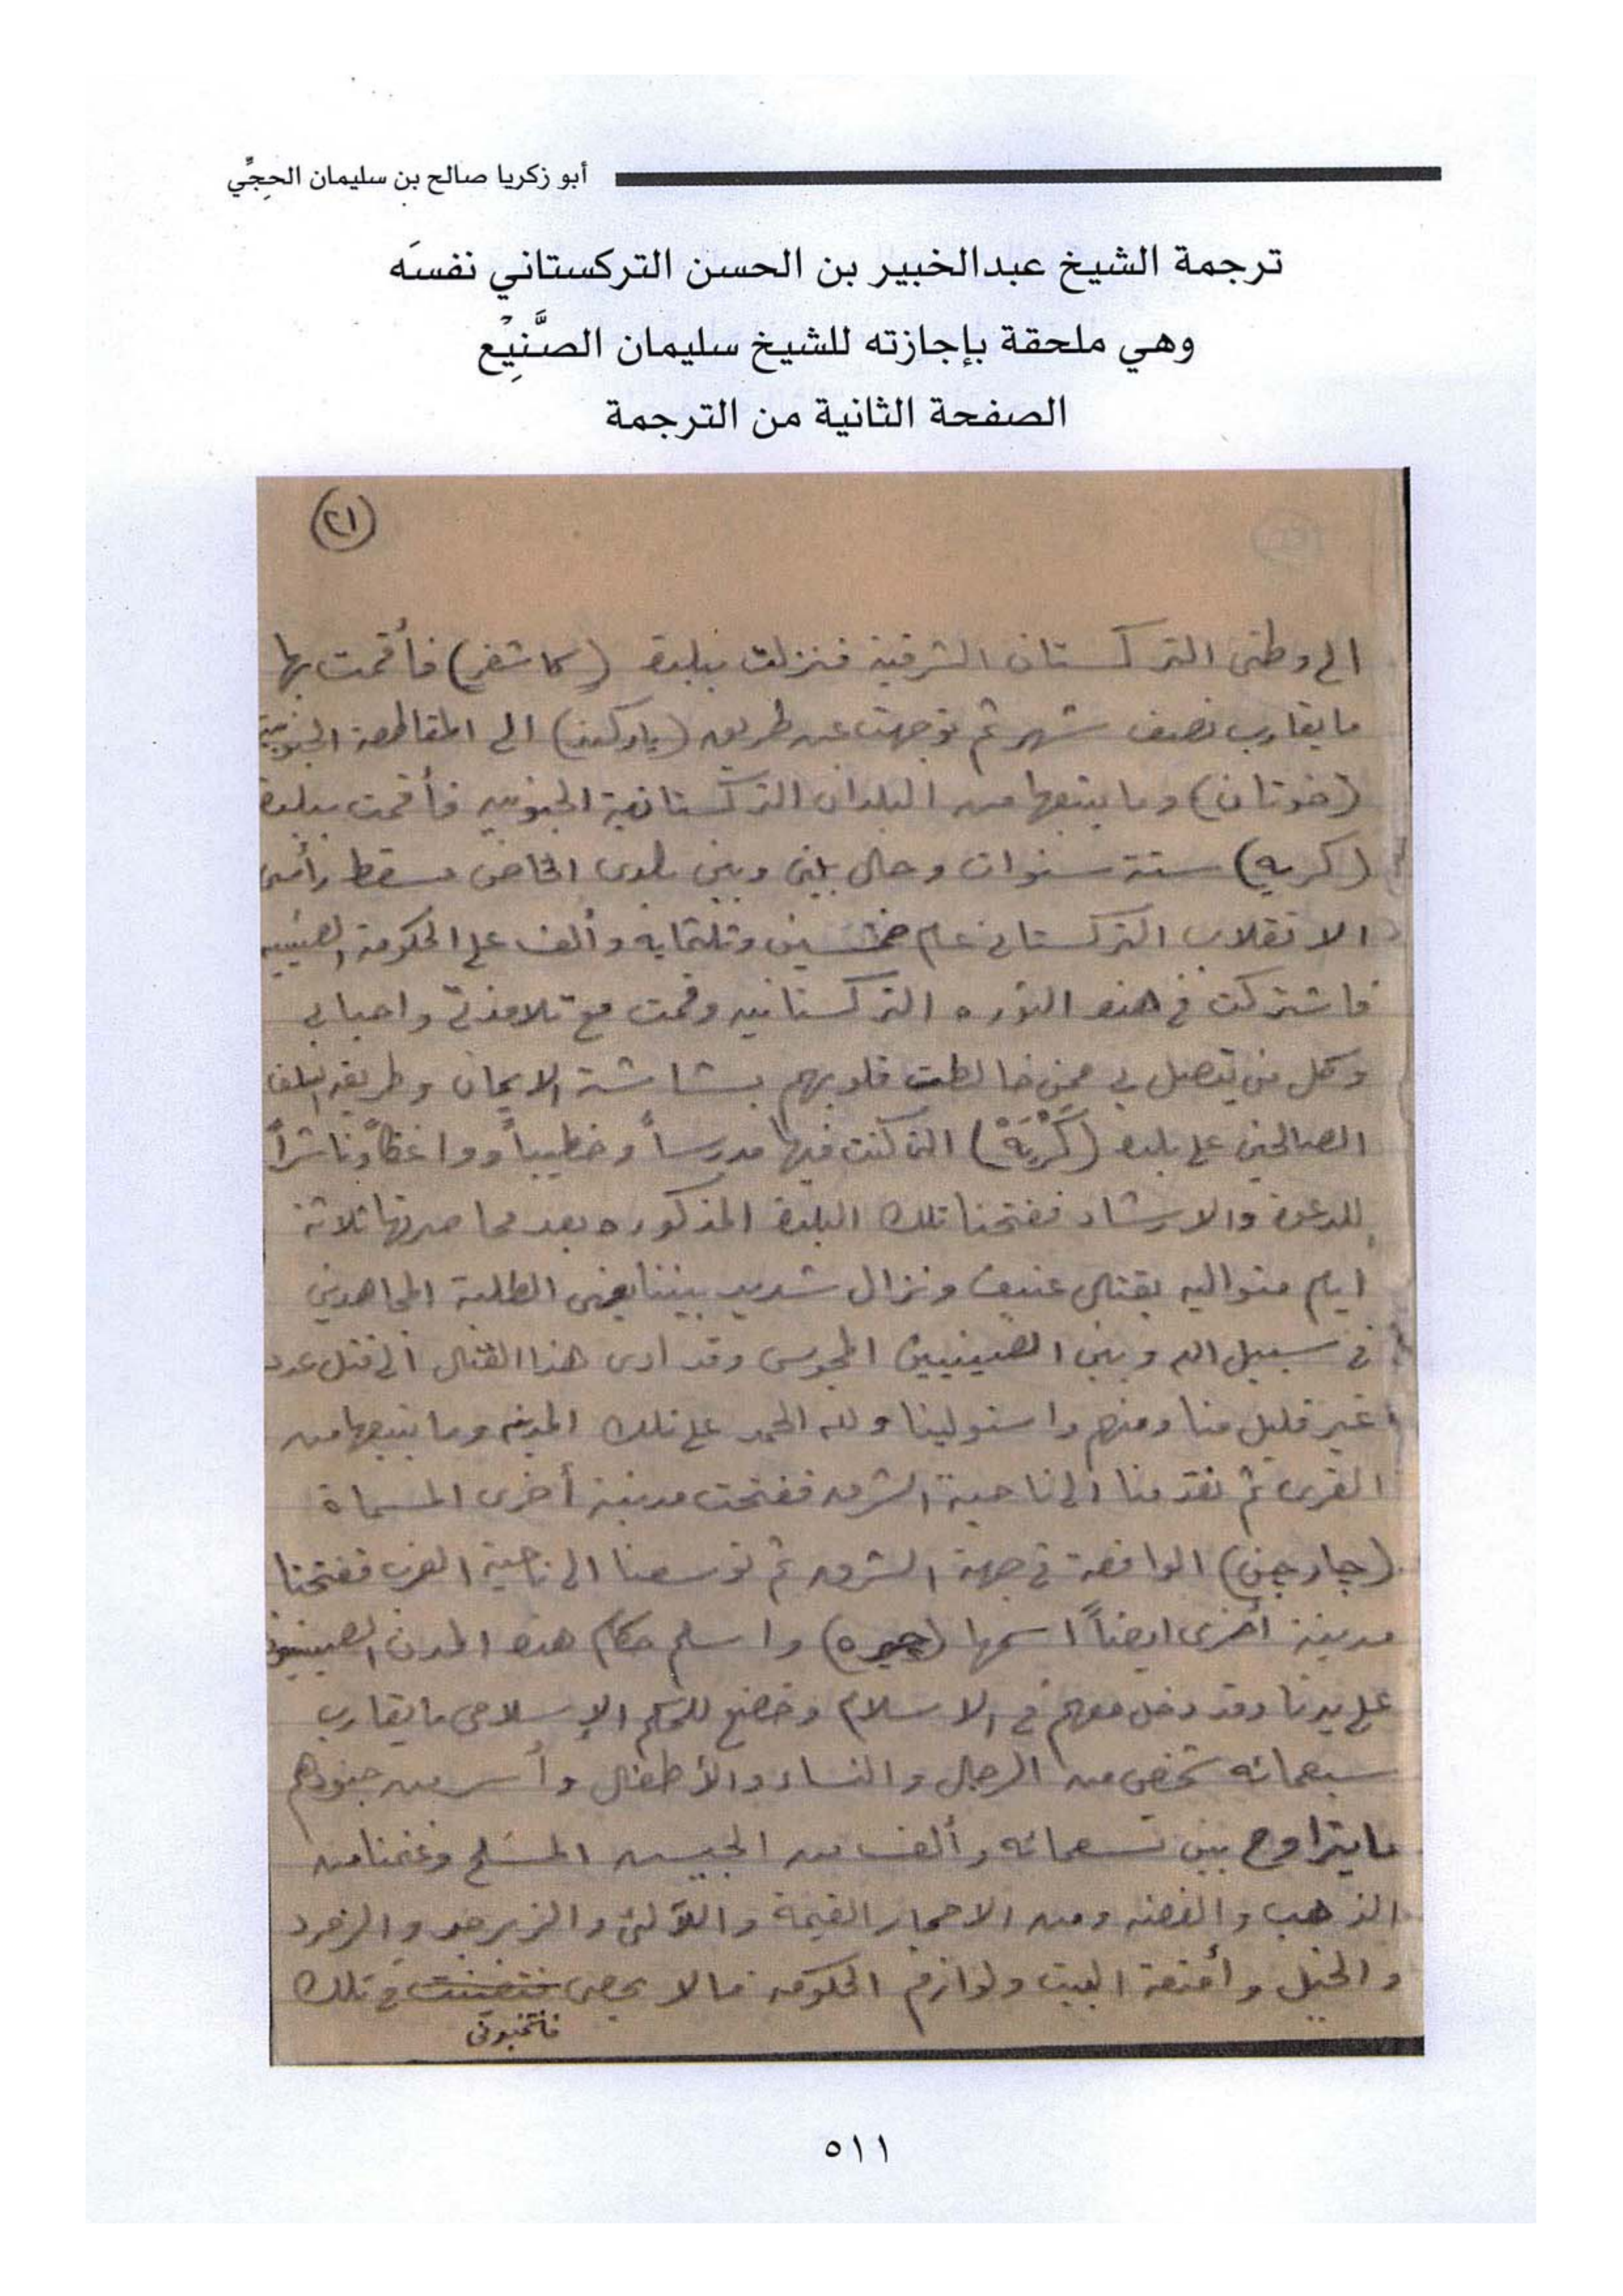 أبو زكريا صالح بن سليمان الحِجِّي
ترجمة الشيخ عبدالخبير بن الحسن التركستاني نفسَه
وهي ملحقة بإجازته للشيخ سليمان الصَّنِيْع
الصفحة الثانية من الترجمة
(٢١)
الى وطنى التركستان الشرقية فنزلت ببلدة (كاشغر) فأقمت بها
ما يقارب نصف شهر ثم توجهت عن طريق (ياركند) الى المقاطعة الجنوبية
(خوتان) وما يتبعها من البلدان التركستانية الجنوبيه فأقمت ببلدة
(كريه) ستة سنوات وحال بينى وبين بلدى الخاص مسقط رأسى
الانقلاب التركستانى عام خمسين وثلثمايه وألف على الحكومة الصينيه
فاشتركت فى هذه الثوره التركستانيه وقمت مع تلامذتى واحبابى
وكل من يتصل بى ممن خالطت قلوبهم بشاشة الايمان وطريقة السلف
الصالحين على بلدة (كَرْيَهْ) التى كنت فيها مدرساً وخطيباً وواعظاً وناشراً
للدعوة والارشاد ففتحنا تلك البلدة المذكوره بعد محاصرتها ثلاثة
ايام متواليه بقتال عنيف ونزال شديد بيننا يعنى الطلبة المجاهدين
فى سبيل الله وبين الصينيين المجوس وقد ادى هذا القتال الى قتل عدد
غير قليل منا ومنهم واستولينا ولله الحمد على تلك المدينه وما يتبعها من
القرى ثم تقدمنا الى ناحية الشرق ففتحت مدينة أخرى المسماة
(چارچن) الواقعة فى جهة الشرق ثم توسعنا الى ناحية الغرب ففتحنا
مدينة أخرى ايضاً اسمها (چيره) واسلم حكام هذه المدن الصينيون
على يدنا وقد دخل معهم فى الاسلام وخضع للحكم الإسلامى ما يقارب
سبعمائه شخص من الرجال والنساء والأطفال وأسر من جنودهم
ما يتراوح بين تسعمائه وألف من الجيش المسلح وغنمنا من
الذهب والفضه ومن الاحجار القيمة واللآلئ والزبرجد والزمرد
والخيل وأمتعة البيت ولوازم الحكومه مالا يحصى فى تلك
فانتخبونى
٥١١